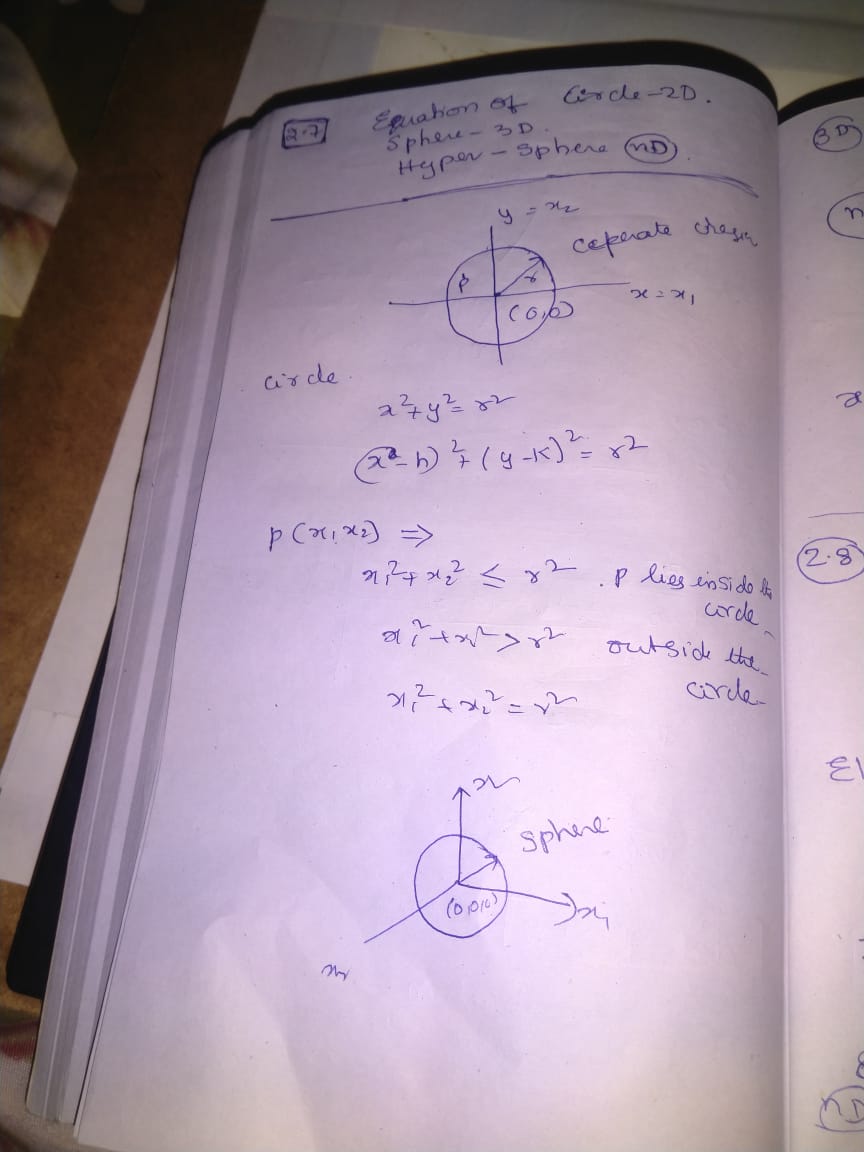 2.7
Equation of Circle-2D.
Sphere - 3D.
Hyper - Sphere (nD).
y = x₂
r
p
x = x₁
(0,0)
circle.
x² + y² = r²
(x - h)² + (y - k)² = r²
p(x₁ x₂) ⇒
x₁² + x₂² ≤ r² . p lies inside the
circle
x₁² + x₂² > r² outside the
circle
x₁² + x₂² = r²
sphere
(0,0,0)
x₁
3D
n
x
2.8
El
nD